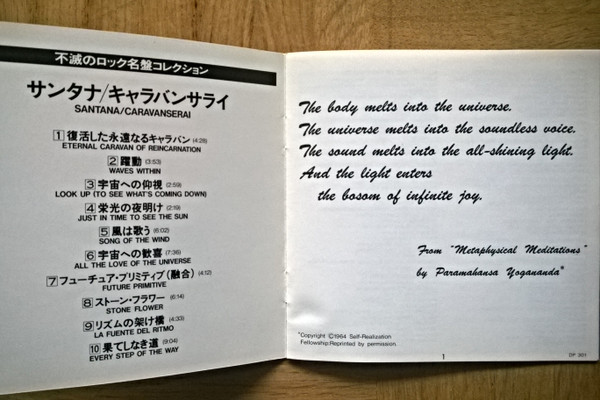 不滅のロック名盤コレクション
サンタナ/キャラバンサライ
SANTANA/CARAVANSERAI
1 復活した永遠なるキャラバン (4:28)
ETERNAL CARAVAN OF REINCARNATION
2 躍動 (3:53)
WAVES WITHIN
3 宇宙への仰視 (2:59)
LOOK UP (TO SEE WHAT'S COMING DOWN)
4 栄光の夜明け (2:19)
JUST IN TIME TO SEE THE SUN
5 風は歌う (6:02)
SONG OF THE WIND
6 宇宙への歓喜 (7:36)
ALL THE LOVE OF THE UNIVERSE
7 フューチュア・プリミティブ (融合) (4:12)
FUTURE PRIMITIVE
8 ストーン・フラワー (6:14)
STONE FLOWER
9 リズムの架け橋 (4:33)
LA FUENTE DEL RITMO
10 果てしなき道 (9:04)
EVERY STEP OF THE WAY
The body melts into the universe.
The universe melts into the soundless voice.
The sound melts into the all-shining light.
And the light enters
the bosom of infinite joy.
From "Metaphysical Meditations"
by Paramahansa Yogananda*
*Copyright ©1964 Self-Realization
Fellowship:Reprinted by permission.
1